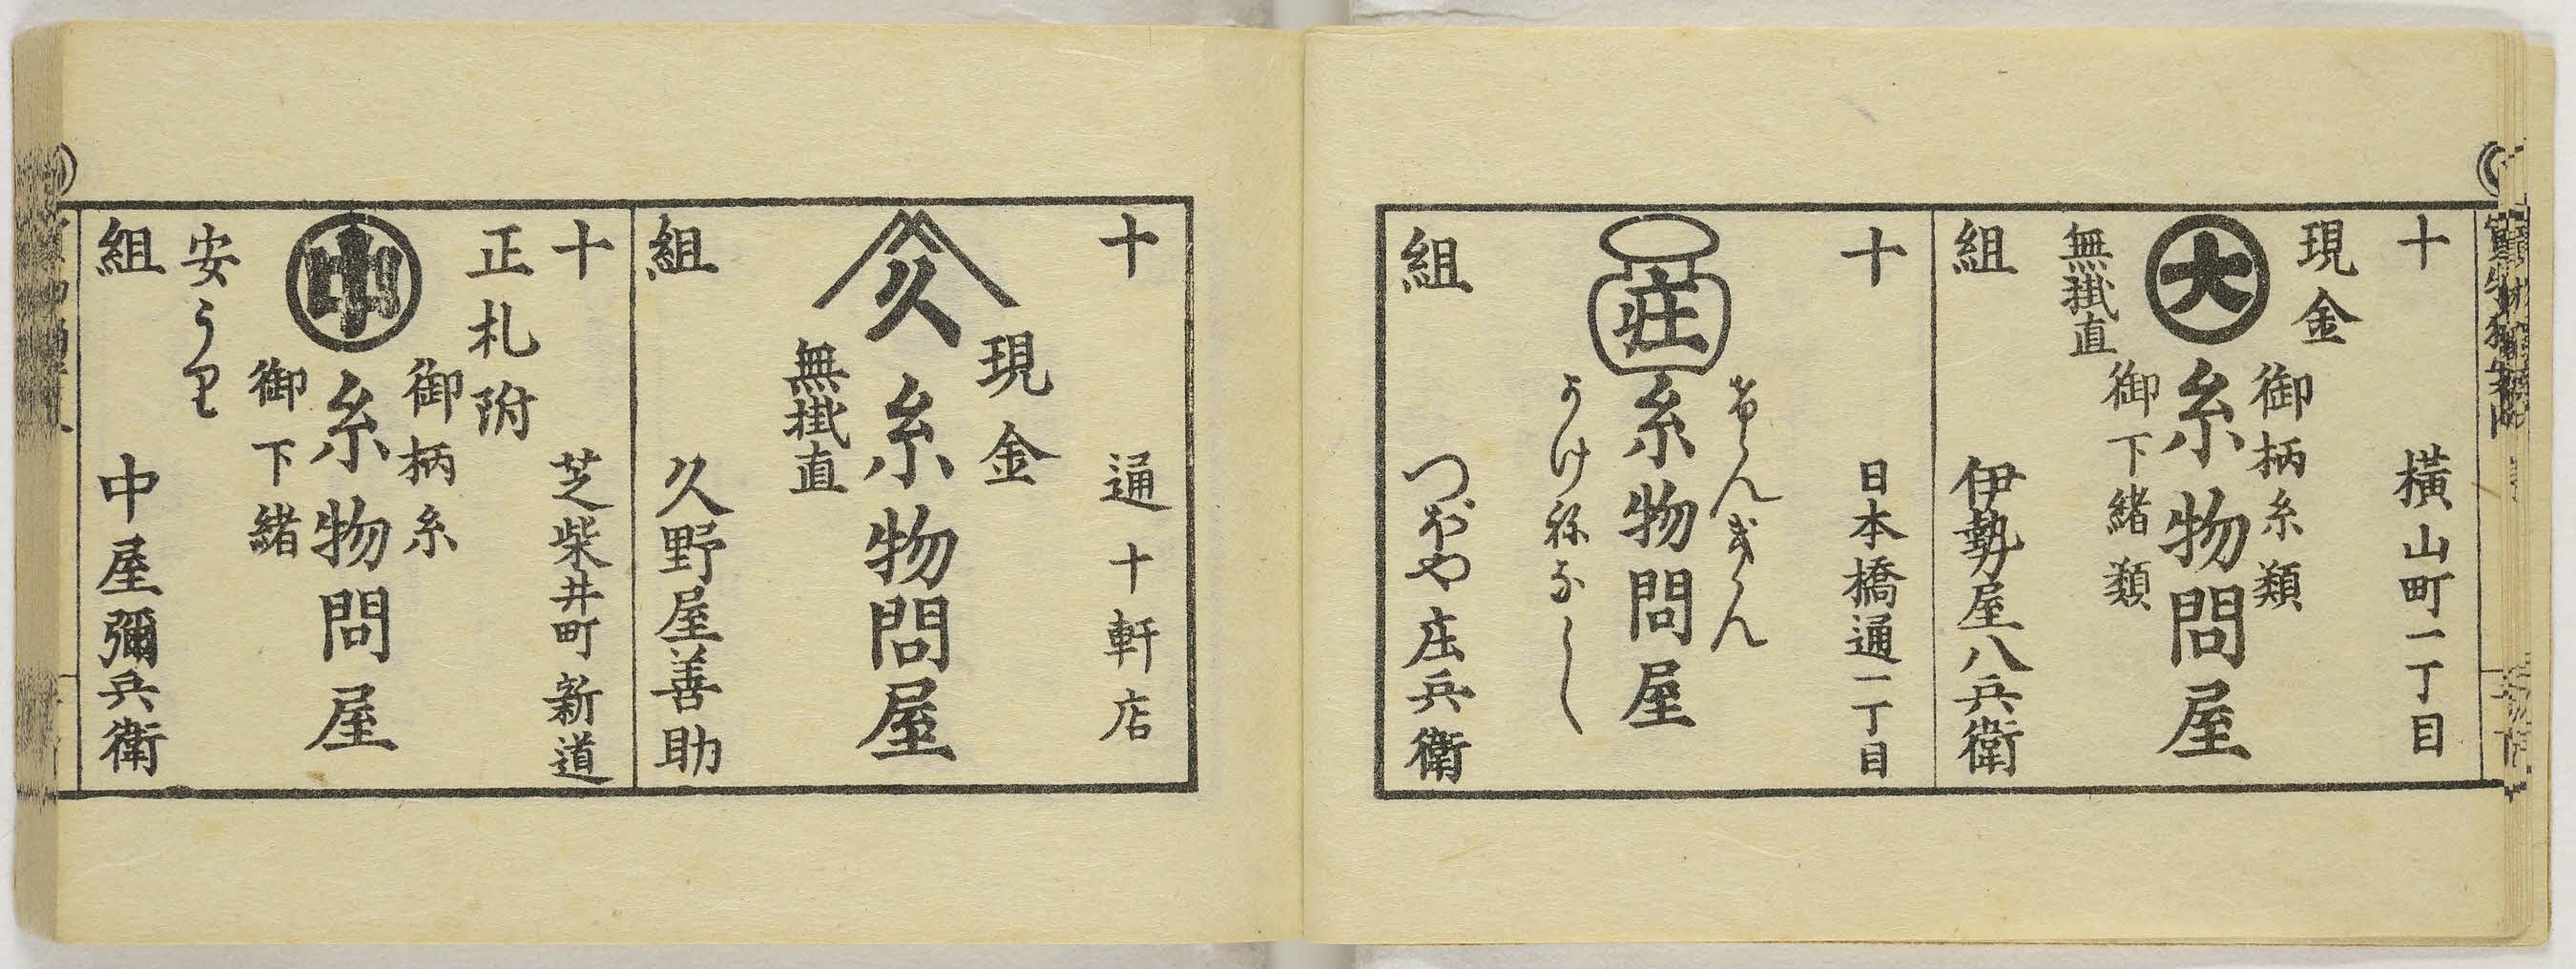 十 横山町一丁目
現金
御柄糸類
大
糸物問屋
御下緒類
無掛直
組 伊勢屋八兵衛
十 日本橋通一丁目
げんきん
荘
糸物問屋
かけねなし
組 つぼや庄兵衛
十 通十軒店
現金
久
糸物問屋
無掛直
組 久野屋善助
十 芝柴井町新道
正札附
御柄糸
中
糸物問屋
御下緒
安うり
組 中屋彌兵衛